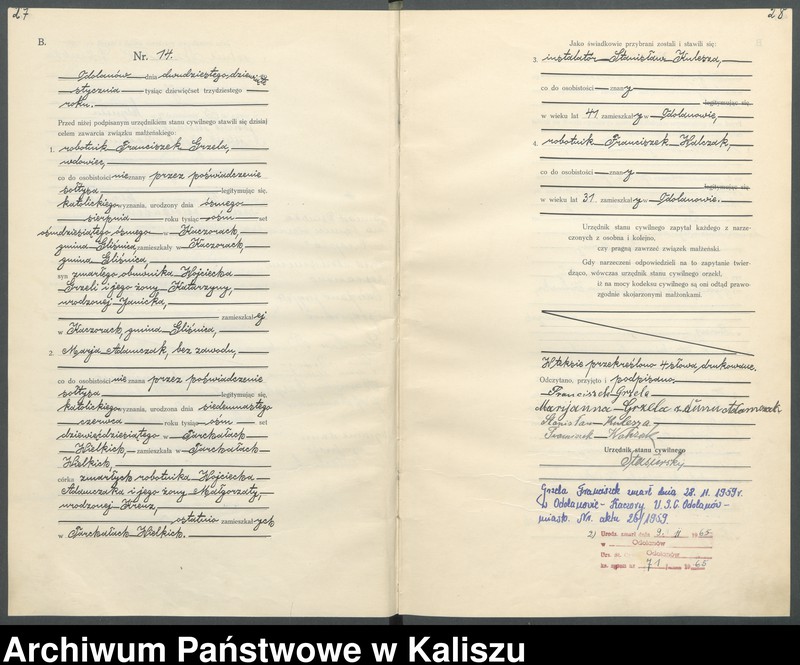 27
B.
Nr. 14.
Odolanów dnia dwudziestego dziewiątego
stycznia tysiąc dziewięćset trzydziestego
roku.
Przed niżej podpisanym urzędnikiem stanu cywilnego stawili się dzisiaj
celem zawarcia związku małżeńskiego:
1. robotnik Franciszek Grzela,
wdowiec,
co do osobistości nieznany przez poświadczenie
sołtysa legitymując się,
katolickiego wyznania, urodzony dnia ósmego
sierpnia roku tysiąc ośm set
ośmdziesiątego ósmego w Kaczorach,
gmina Gliśnica, zamieszkały w Kaczorach,
gmina Gliśnica,
syn zmarłego obuwnika Wojciecha
Grzeli i jego żony Katarzyny,
urodzonej Janicka,
zamieszkałej
w Kaczorach, gmina Gliśnica,
2. Marja Adamczak, bez zawodu,
co do osobistości nie znana przez poświadczenie
sołtysa legitymując się,
katolickiego wyznania, urodzona dnia siedemnastego
czerwca roku tysiąc ośm set
dziewięćdziesiątego w Tarchałach
Wielkich, zamieszkała w Tarchałach
Wielkich,
córka zmarłych robotnika Wojciecha
Adamczaka i jego żony Małgorzaty,
urodzonej Kreuz,
ostatnio zamieszkałych
w Tarchałach Wielkich.
28
B.
Jako świadkowie przybrani zostali i stawili się:
3. instalator Stanisław Kulesza,
co do osobistości znany
legitymując się
w wieku lat 41 zamieszkały w Odolanowie,
4. robotnik Franciszek Walczak,
co do osobistości znany
legitymując się
w wieku lat 31 zamieszkały w Odolanowie.
Urzędnik stanu cywilnego zapytał każdego z narze-
czonych z osobna i kolejno,
czy pragną zawrzeć związek małżeński.
Gdy narzeczeni odpowiedzieli na to zapytanie twier-
dząco, wówczas urzędnik stanu cywilnego orzekł,
iż na mocy kodeksu cywilnego są oni odtąd prawo-
zgodnie skojarzonymi małżonkami.
W tekście przekreślono 4 słowa drukowane.
Odczytano, przyjęto i podpisano.
Franciszek Grzela
Maryjanna Grzela z domu Adamczak
Stanisław Kulesza
Franciszek Walczak
Urzędnik stanu cywilnego
Grzela Franciszek zmarł dnia 28. 11. 1959 r.
w Odolanowie - Kaczory U.S.C. Odolanów -
miasto. Nr. aktu 26/1959.
2) Urodz. zmarł dnia 9. II 1965
w Odolanów
Urz. st. Odolanów
71 1965
Archiwum Państwowe w Kaliszu